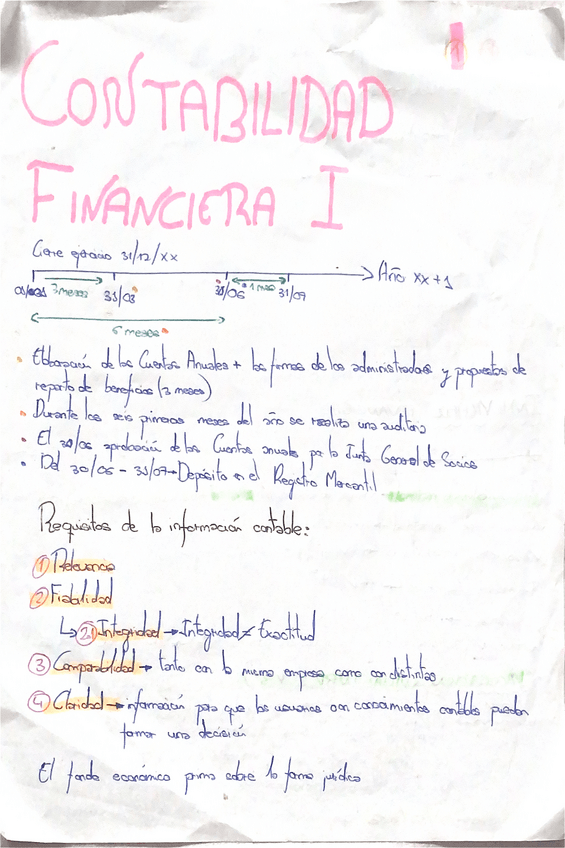 CONTABILIDAD
FINANCIERA I
Cierre ejercicio 31/12/xx
Año xx+1
3 meses 31/03 30/06 1 mes 31/07
6 meses
• Elaboración de las Cuentas Anuales + las firmas de los administradores y propuestas de
reparto de beneficios (3 meses)
• Durante los seis primeros meses del año se realiza una auditoria
• El 30/06 aprobación de las Cuentas anuales por la Junta General de Socios
• Del 30/06 - 31/07 → Depósito en el Registro Mercantil
Requisitos de la información contable:
① Relevancia
② Fiabilidad
↳ 2.1 Integridad → Integridad ≠ Exactitud
③ Comparabilidad → tanto con la misma empresa como con distintas
④ Claridad → información para que los usuarios con conocimientos contables puedan
tomar una decisión
El fondo económico prima sobre la forma jurídica